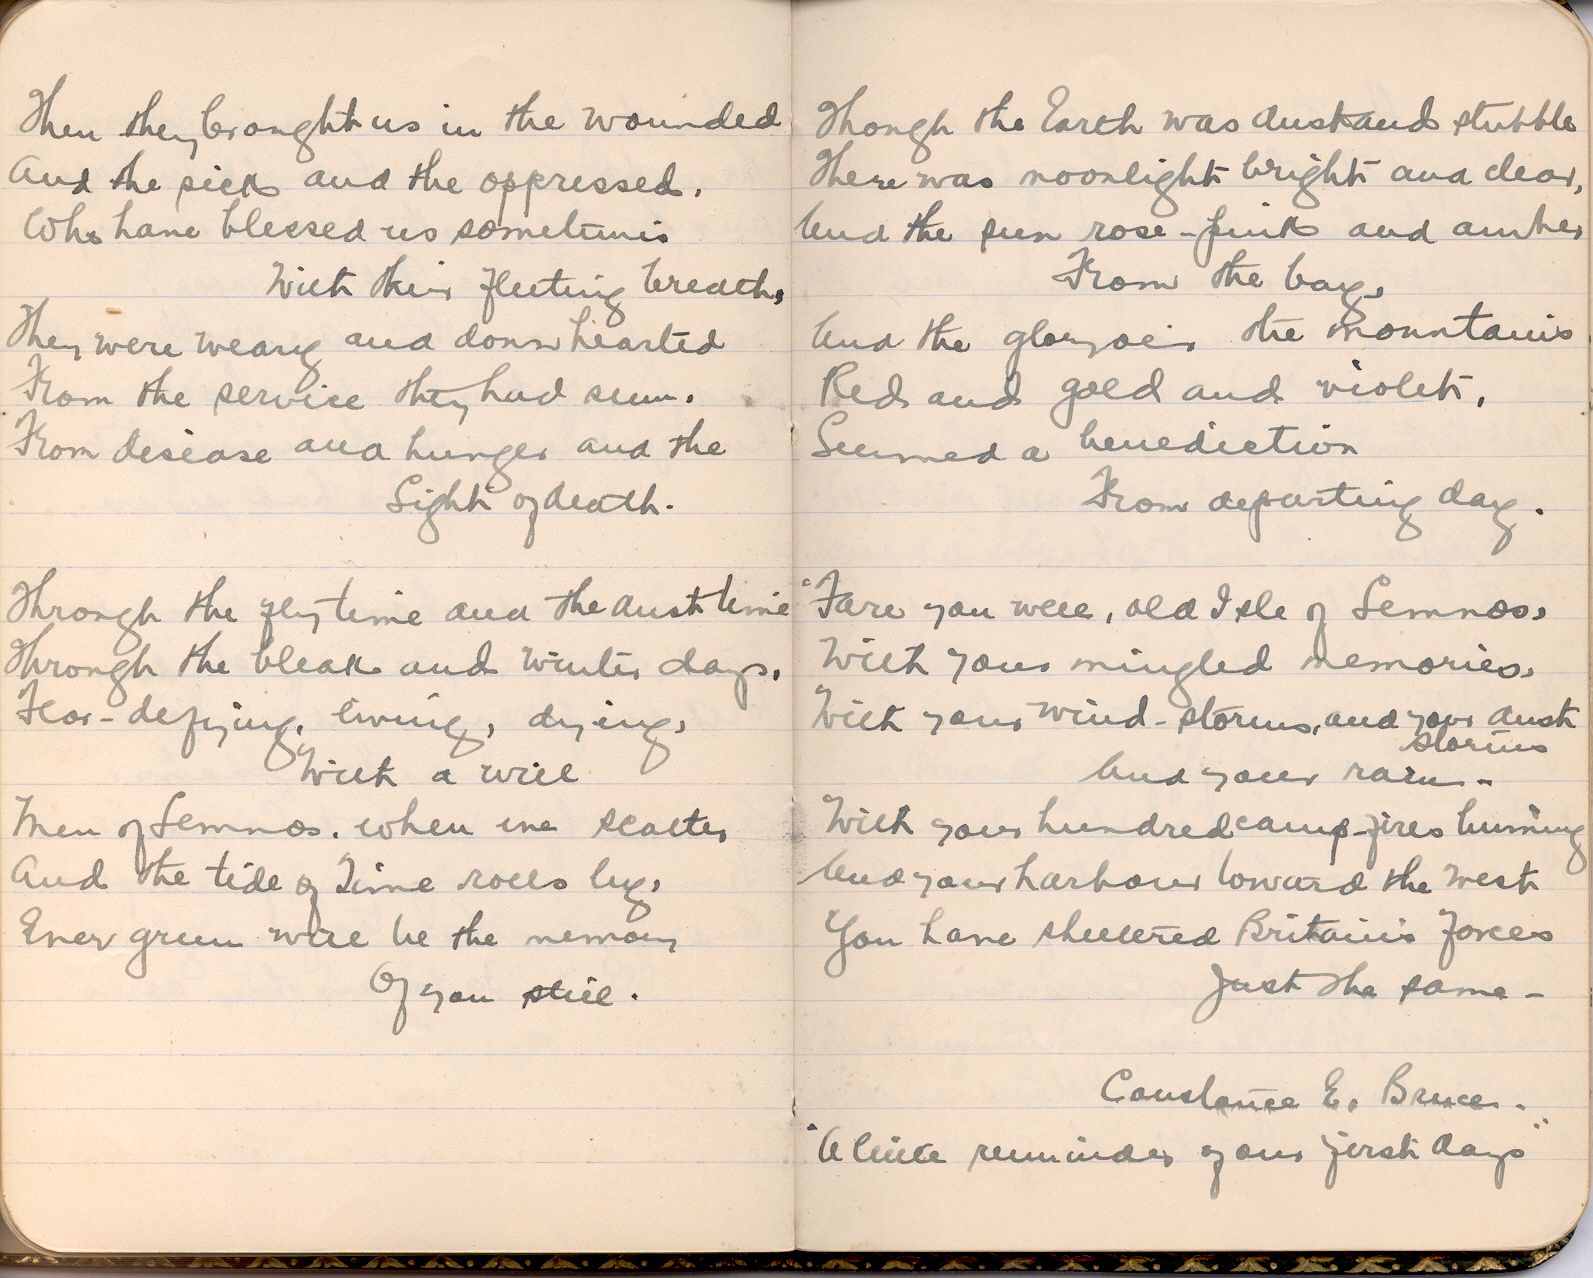 Then they brought us in the wounded
And the sick and the oppressed,
Who have blessed us sometimes
With their fleeting breath,
They were weary and downhearted
From the service they had seen,
From disease and hunger and the
Sight of death.
Through the fly time and the dust time
Through the bleak and winter days,
Fear-defying, living, dying,
With a will
Men of Lemnos, when we scatter
And the tide of Time rolls by,
Ever green will be the memory
Of you still.
Though the Earth was dust and stubble
There was moonlight bright and clear,
And the sun rose-pink and amber
From the bay,
And the glory o'er the mountains
Red and gold and violet,
Seemed a benediction
From departing day.
"Fare you well, old Isle of Lemnos,
With your mingled memories,
With your wind-storms, and your dust
storms
And your rain -
With your hundred camp-fires burning
And your harbour toward the West
You have sheltered Britain's Forces
Just the same -
Constance E. Bruce.
"A little reminder of our first days"